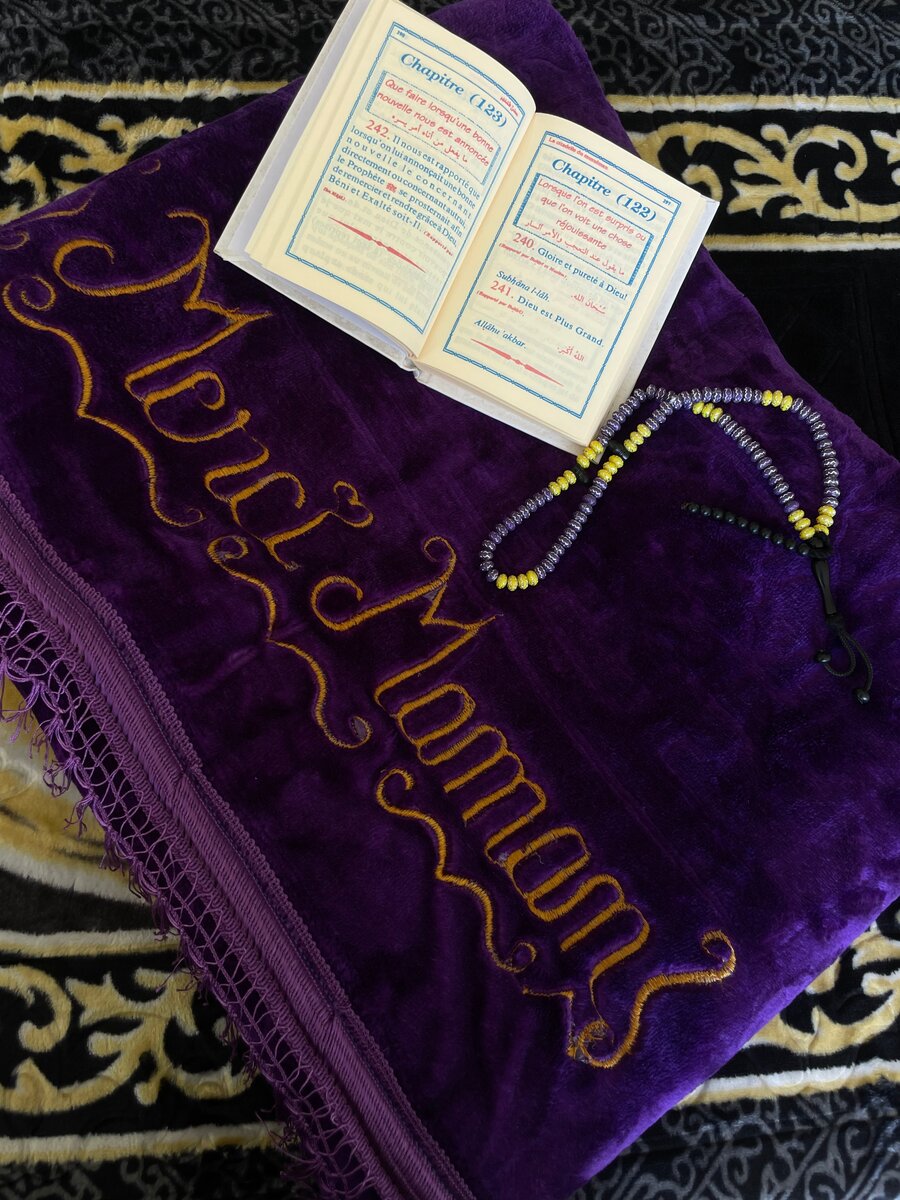 390
Chapitre (123)
Que faire lorsqu'une bonne
nouvelle nous est annoncée
ما يفعل من أتاه أمر يسره
242. Il nous est rapporté que
lorsqu'on lui annonçait une bonne
nouvelle le concernant
directement ou concernant autrui,
le Prophète ﷺ se prosternait afin
de remercier et rendre grâce à Dieu,
Béni et Exalté soit-Il.
La citadelle du musulman
391
Chapitre (122)
Lorsque l'on est surpris ou
que l'on voit une chose
réjouissante
ما يقول عند التعجب والأمر السار
240. Gloire et pureté à Dieu!
Subhâna l-lâh.
سُبْحَانَ اللهِ.
241. Dieu est Plus Grand.
Allâhu 'akbar.
اللهُ أَكْبَرُ.
Merci Maman